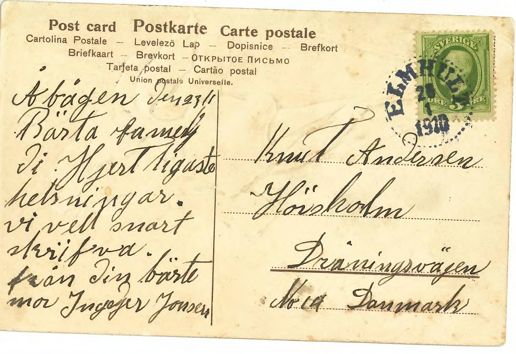 Post card Postkarte Carte postale
Cartolina Postale – Levelező Lap – Dopisnice – Brefkort
Briefkaart – Brevkort – ОТКРЫТОЕ ПИСЬМО
Tarjeta postal – Cartão postal
Union postale Universelle.
SVERIGE
ELMHULT
1910
Åbägen den
Bärta
di Hjertligaste
helsningar.
vi vell snart
skrifva.
från din bärte
mor Ingeger Jonsen
Knut Andersen
Hörsholm
Dräningsvägen
Danmark